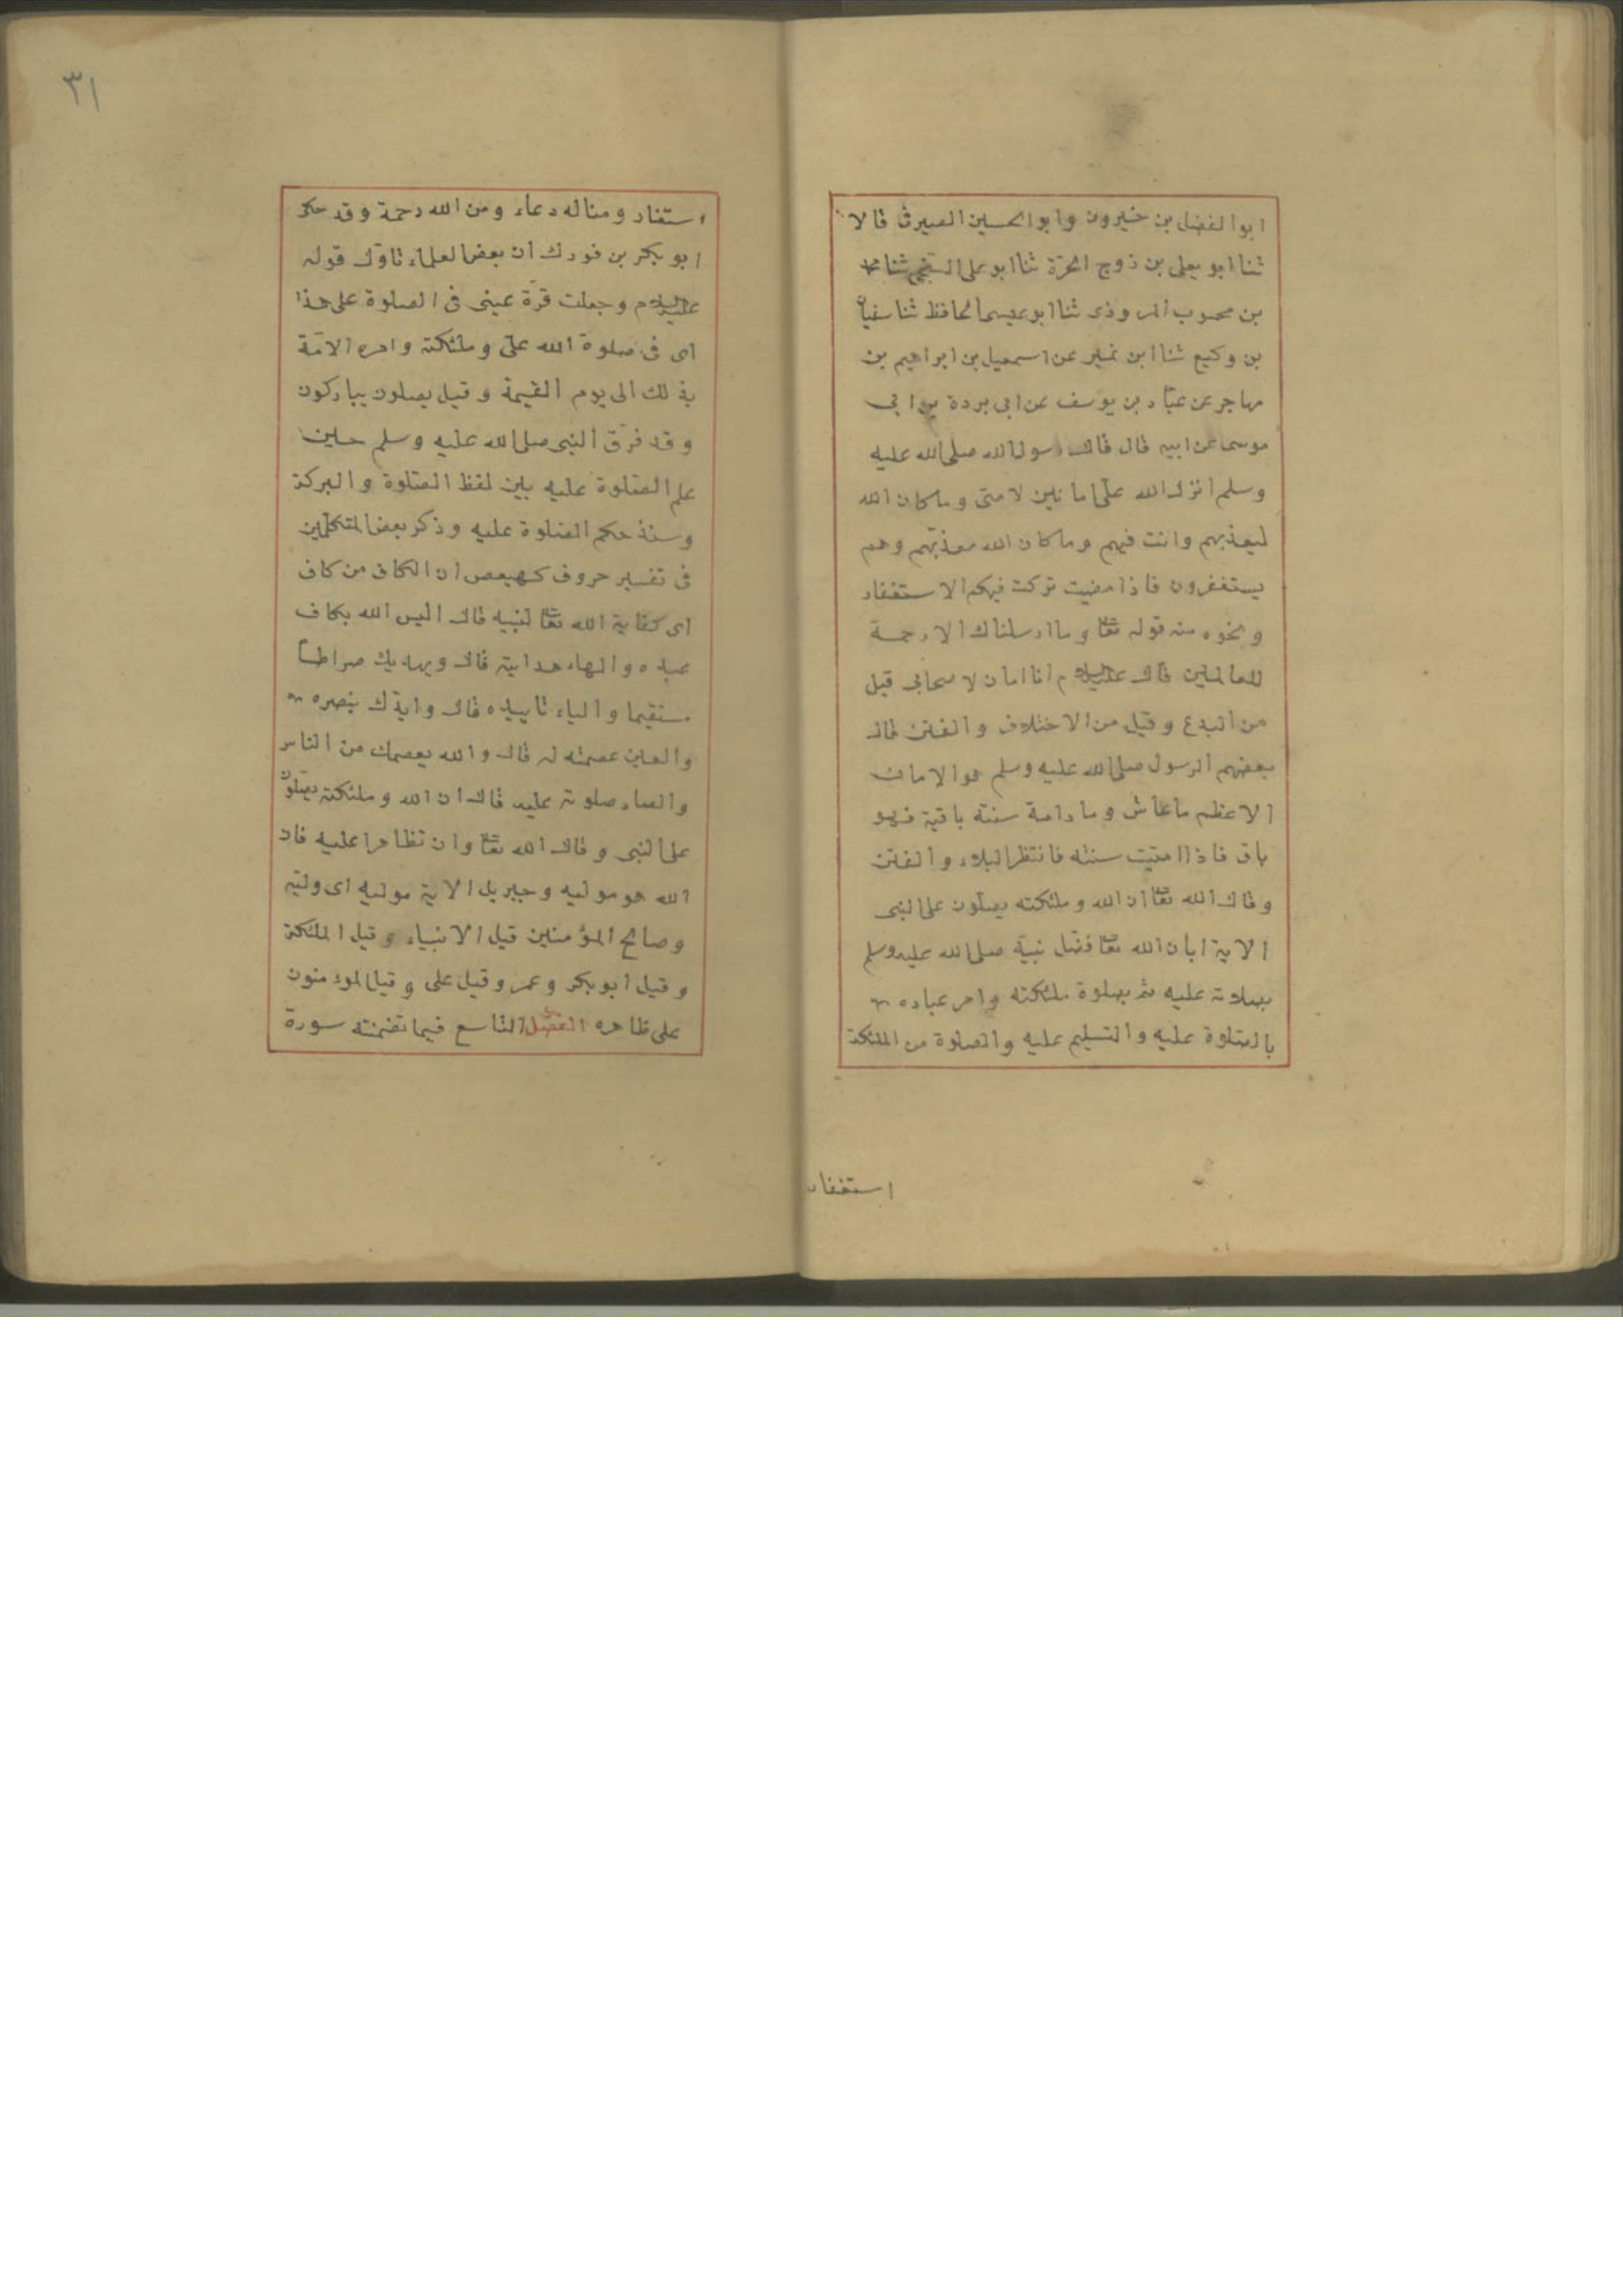 ابو الفضل بن خيرون وابو الحسين الصيرفى قالا
ثنا ابو يعلى بن زوج الحرّة ثنا ابو على السنجى ثنا محمد
بن محبوب المروذى ثنا ابو عيسى الحافظ ثنا سفيان
بن وكيع ثنا ابن نمير عن اسمعيل بن ابراهيم بن
مهاجر عن عبّاد بن يوسف عن ابى بردة بن ابى
موسى عن ابيه قال قال رسول الله صلى الله عليه
وسلم انزل الله علىّ امانين لامتى وما كان الله
ليعذبهم وانت فيهم وما كان الله معذّبهم وهم
يستغفرون فاذا مضيت تركت فيكم الاستغفار
ونحوه منه قوله تعا وما ارسلناك الا رحمة
للعالمين قال عليه السلام انا امان لاصحابى قيل
من البدع وقيل من الاختلاف والفتن قال
بعضهم الرسول صلى الله عليه وسلم هو الامان
الاعظم ما عاش وما دامة سنته باقية فهو
باق فاذا اميتت سنته فانتظر البلاء والفتن
وقال الله تعا ان الله وملئكته يصلّون على النبى
الاية ابان الله تعا فضل نبيّه صلى الله عليه وسلم
بصلاته عليه ثم بصلوة ملئكته وامر عباده
بالصّلوة عليه والتسليم عليه والصلوة من الملئكة
استغفار
٣١
استغفار ومنا له دعاء ومن الله رحمة وقد حكى
ابو بكر بن فورك ان بعض العلماء تاوّل قوله
عليه السلام وجعلت قرّة عينى فى الصلوة على هذا
اى فى صلوة الله علىّ وملئكته وامره الامّة
بذلك الى يوم القيمة وقيل يصلون يباركون
وقد فرّق النبى صلى الله عليه وسلم حين
علم الصّلوة عليه بين لفظ الصّلوة والبركة
وسنذ حكم الصّلوة عليه وذكر بعض المتكلمين
فى تفسير حروف كهيعص ان الكاف من كاف
اى كفاية الله تعا لنبيه قال اليس الله بكاف
عبده والهاء هدايته قال ويهديك صراطا
مستقيما والياء تاييده قال وايدّك بنصره
والعين عصمته له قال والله يعصمك من الناس
والصاد صلوته عليه قال ان الله وملئكته يصلّون
على النبى وقال الله تعا وان تظاهرا عليه فان
الله هو موليه وجبريل الاية موليه اى وليّه
وصالح المؤمنين قيل الانبياء وقيل الملئكة
وقيل ابو بكر وعمر وقيل على وقيل المؤمنون
على ظاهره الفصل التاسع فيما تضمنته سورة